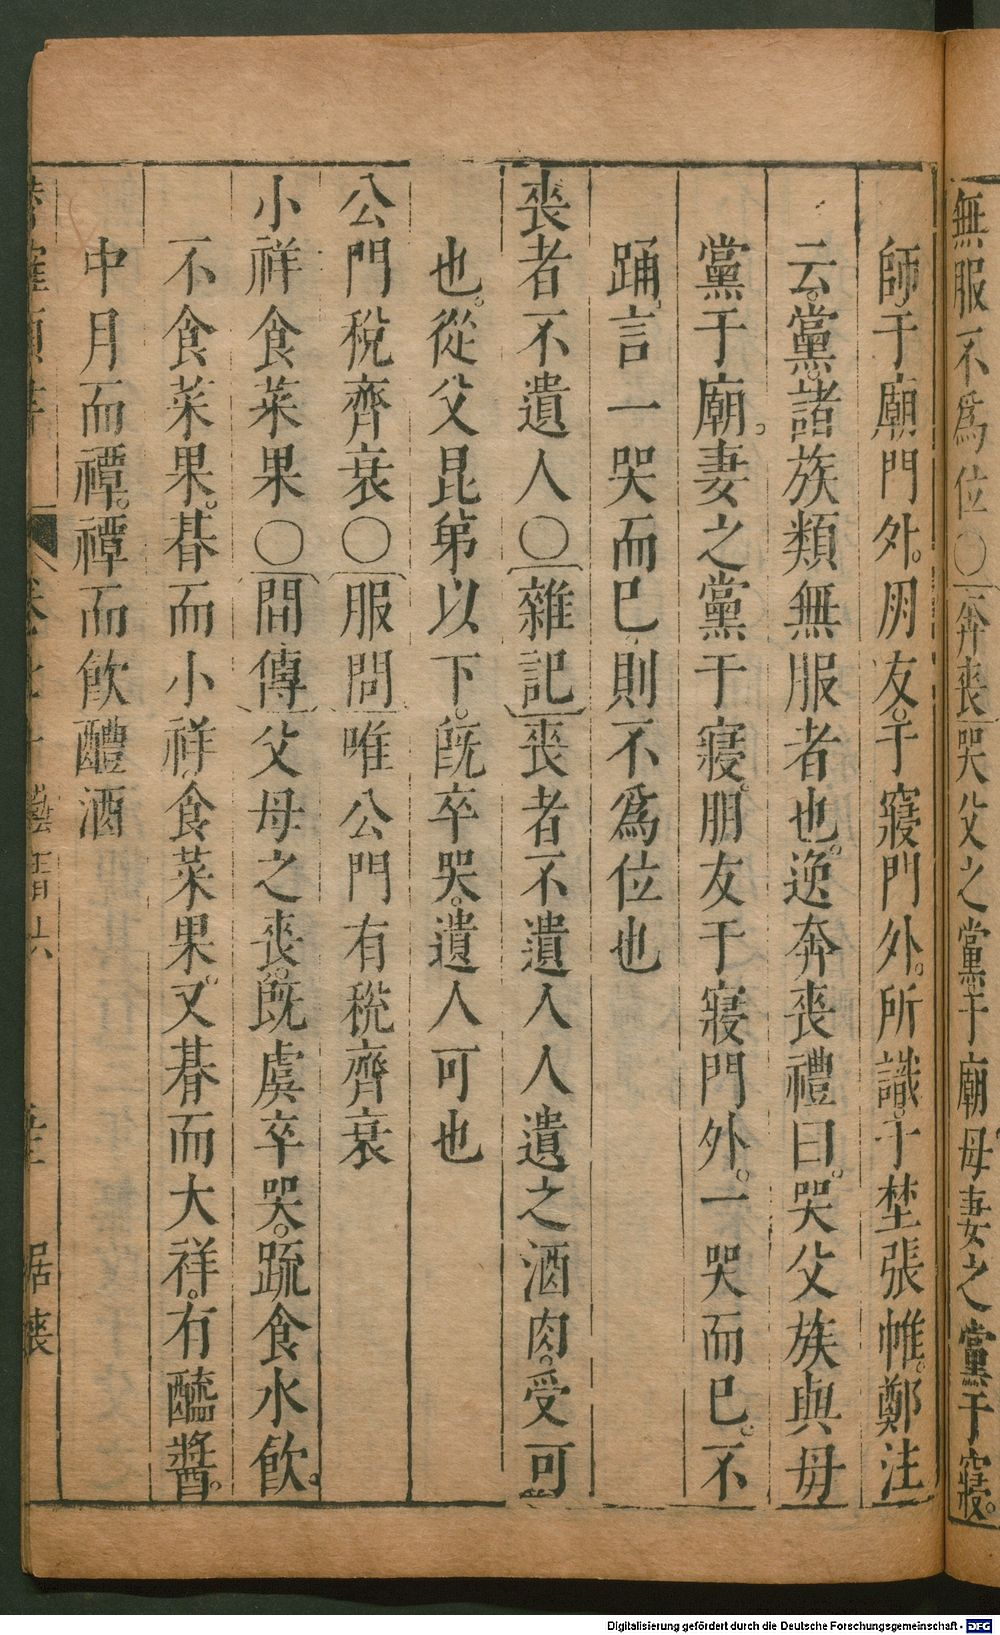 無服不爲位〇奔喪哭父之黨于廟母妻之黨于寢。
師于廟門外。朋友。于寢門外。所識。于埜張帷。鄭注
云。黨。諸族類無服者也。逸奔喪禮曰。哭父族與母
黨于廟。妻之黨于寢。朋友于寢門外。一哭而已。不
踊。言一哭而已。則不爲位也
喪者不遺人〇雜記喪者不遺人人遺之酒肉。受可
也。從父昆弟以下。旣卒哭。遺人可也
公門稅齊衰〇服問唯公門有稅齊衰
小祥食菜果〇間傳父母之喪。旣虞卒哭。疏食水飮。
不食菜果。朞而小祥。食菜果。又朞而大祥。有醯醬。
中月而禫。禫而飮醴酒
居喪
Digitalisierung gefördert durch die Deutsche Forschungsgemeinschaft - DFG